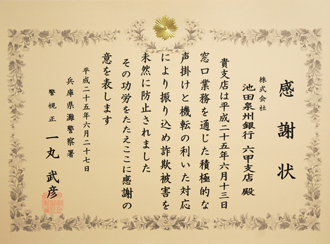 感謝状
株式会社
池田泉州銀行 六甲支店 殿
貴支店は平成二十五年六月十三日
窓口業務を通じた積極的な
声掛けと機転の利いた対応
により振り込め詐欺被害を
未然に防止されました
その功労をたたえここに感謝の
意を表します
平成二十五年六月二十七日
兵庫県灘警察署
警視正 一丸 武彦